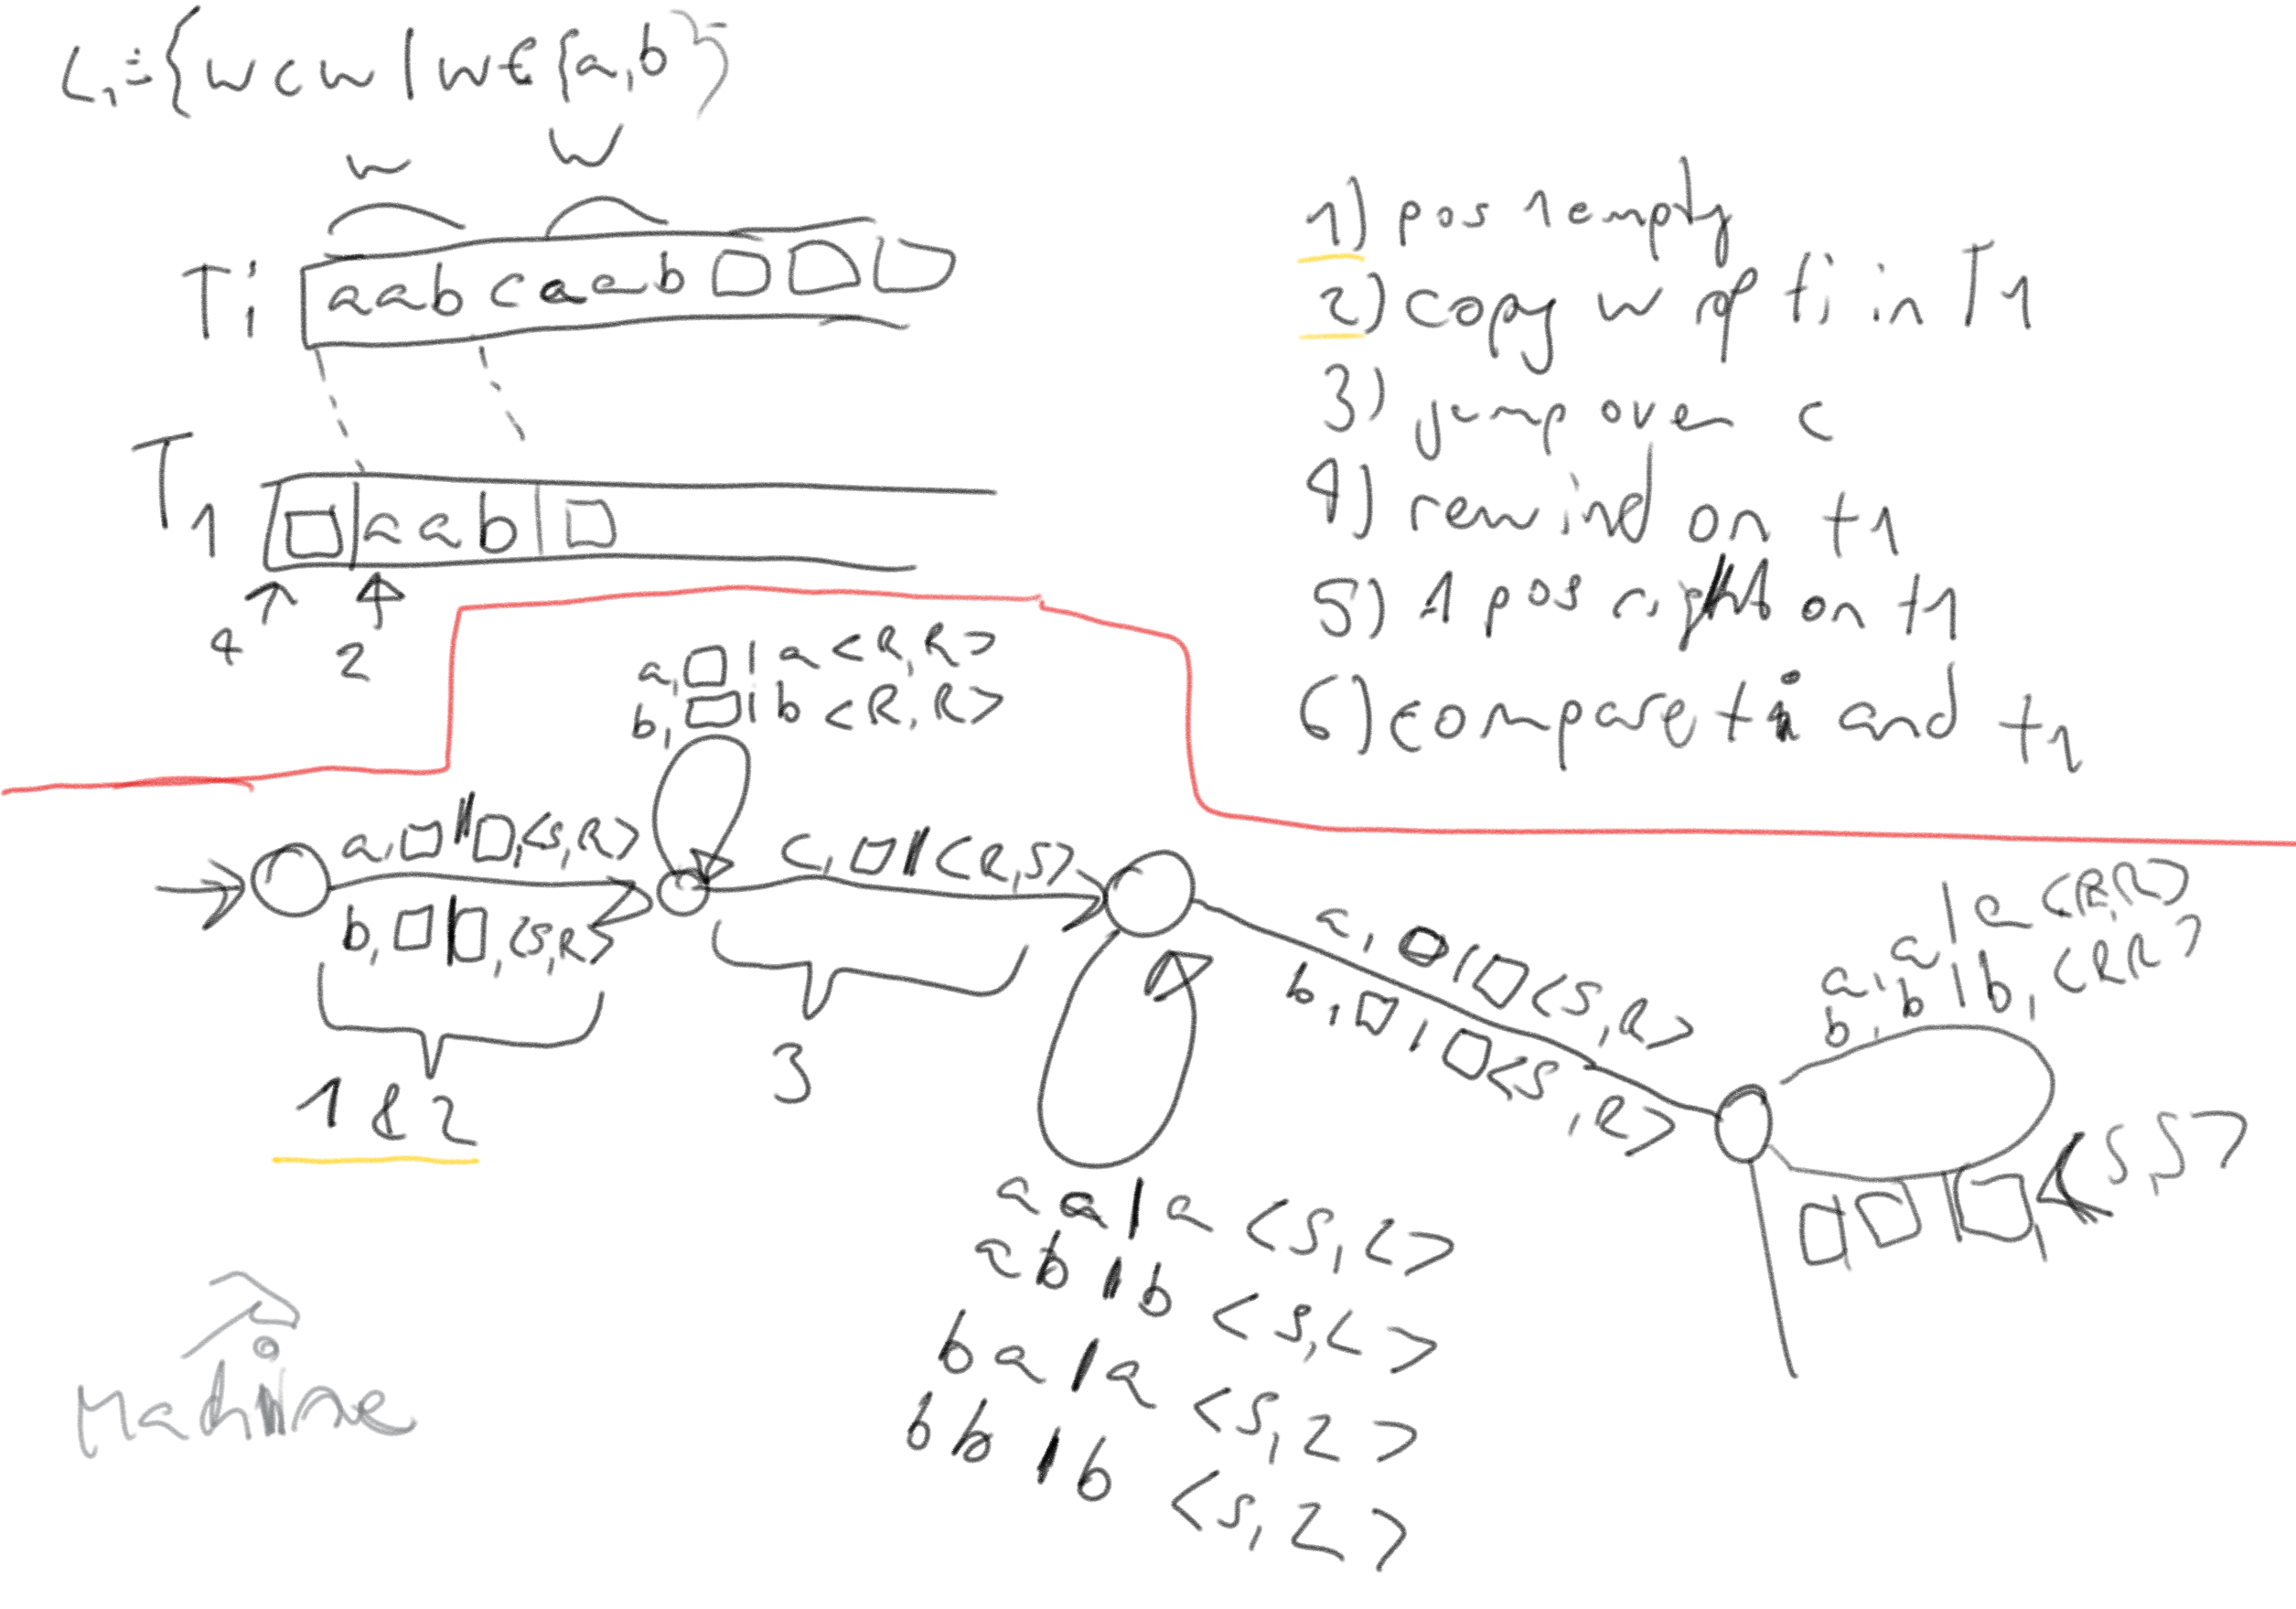 L₁ = {w c w | w ∈ {a,b}
w
w
Ti a a b c a a b □ □ □
T1 □ | a a b | □
4
2
1) pos 1 empty
2) copy w of ti in T1
3) jump over c
4) rewind on t1
5) 1 pos right on t1
6) compare ti and t1
a, □ | a <R, R>
b, □ | b <R, R>
a, □ | □, <S, R>
b, □ | □, <S, R>
1 & 2
c, □ | <R, S>
3
a, □ | □ <S, R>
b, □, | □ <S, R>
a, a | a <R, R>
b, b | b, <R R>
□ □ | □ <S, S>
a a | a <S, L>
a b | b <S, L>
b a | a <S, L>
b b | b <S, L>
Machine